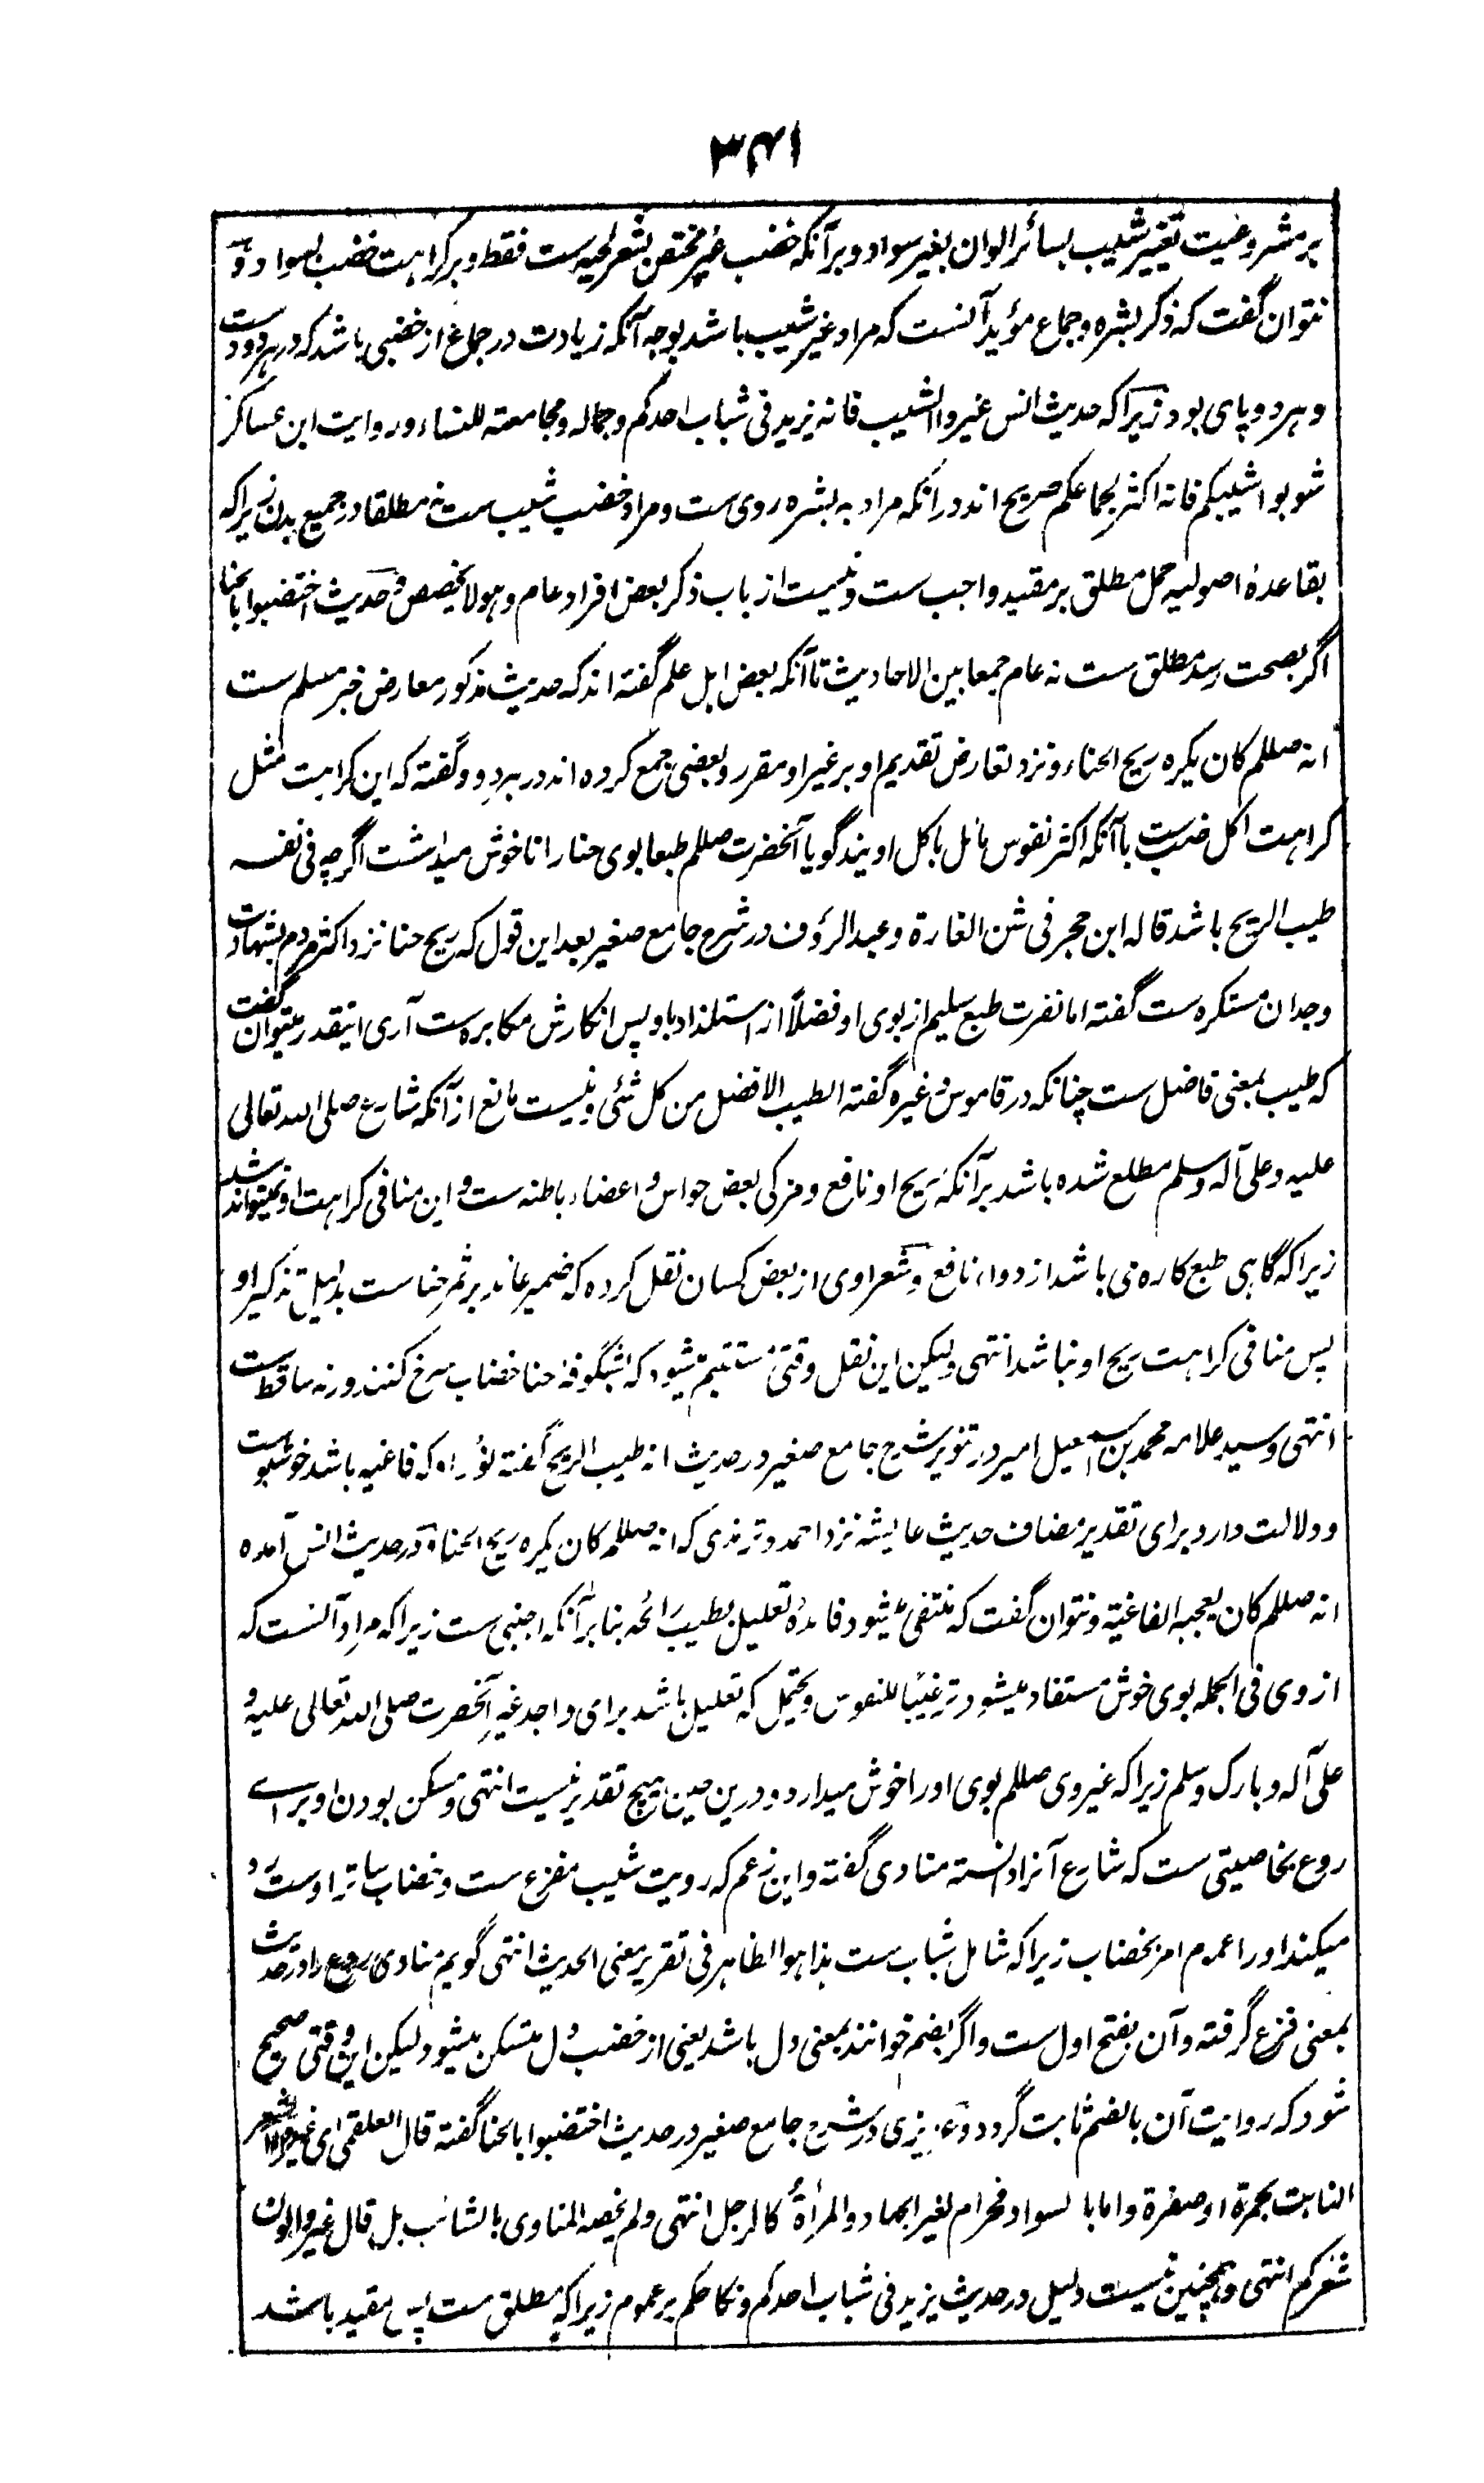 ۳۴۱
بر مشروعیت تغییر شیب بسائر الوان بغیر سواد و بر آنکه خضب غیر مختص بشعر لحیه ست فقط و بر کراهت خضب بسواد و
نتوان گفت که ذکر بشره و جماع مؤید آنست که مراد غیر شیب باشد بوجه آنکه زیادت در جماع از خضبی باشد که در هر دو دست
و هر دو پای بود زیرا که حدیث انس غیروا الشیب فانه یزید فی شباب احدکم و جماله و مجامعته للنساء و روایت ابن عساکر
شوبوا شیبکم فانه اکثر لجماعکم صریح اند در انکه مراد به بشره روی ست و مراد خضب شیب ست نه مطلقا در جمیع بدن زیرا که
بقاعدهٔ اصولیه حمل مطلق بر مقید واجب ست و نیست از باب ذکر بعض افراد عام و هو لا یخصص و حدیث اختضبوا بالحنا
اگر بصحت رسد مطلق ست نه عام جمعا بین الاحادیث تا آنکه بعض اهل علم گفته اند که حدیث مذکور معارض خبر مسلم ست
انه صللم کان یکره ریح الحناء و نزد تعارض تقدیم او بر غیر او مقرر و بعضی جمع کرده اند در هر دو و گفته که این کراهت مثل
کراهت اکل ضب ست با آنکه اکثر نفوس مائل باکل اویند گویا آنحضرت صللم طبعا بوی حنا را ناخوش میداشت اگر چه فی نفسه
طیب الریح باشد قاله ابن حجر فی شن الغارة و عبد الرؤف در شرح جامع صغیر بعد این قول که ریح حنا نزد اکثر مردم بشهادت
وجدان مستکره ست گفته اما نفرت طبع سلیم از بوی او فضلاً از استلذاذ باو پس انکارش مکابره ست آری اینقدر میتوان گفت
که طیب بمعنی فاضل ست چنانکه در قاموس و غیره گفته الطیب الافضل من کل شئ و نیست مانع از آنکه شارع صلی الله تعالی
علیه و علی آله و سلم مطلع شده باشد بر آنکه ریح او نافع و مزکی بعض حواس و اعضاء باطنه ست و این منافی کراهت او نمیتواند شد
زیرا که گاهی طبع کاره می باشد از دواء نافع و شعراوی از بعض کسان نقل کرده که ضمیر عائد بر ثمر حنا ست بدلیل تذکیر او
پس منافی کراهت ریح او نباشد انتهی و لیکن این نقل وقتی مستقیم میشود که بشگوفهٔ حنا خضاب سرخ کنند ورنه ساقط ست
انتهی و سید علامه محمد بن اسمعیل امیر در تنویر شرح جامع صغیر در حدیث انه طیب الریح گفته نؤر او که فاغیه باشد خوشبوست
و دلالت دارد برای تقدیر مضاف حدیث عایشه نزد احمد و ترمذی که انه صللم کان یکره ریح الحناء و در حدیث انس آمده
انه صللم کان یعجبه الفاغیة و نتوان گفت که منتفی میشود فائدهٔ تعلیل بطیب رائحه بنا بر آنکه اجنبی ست زیرا که مراد آنست که
از وی فی الجمله بوی خوش مستفاد میشود ترغیبًا للنفوس و یحتمل که تعلیل باشد برای واجد غیر آنحضرت صلی الله تعالی علیه و
علی آله و بارک و سلم زیرا که غیر وی صللم بوی او را خوش میدارد و درین حین هیچ تقدیر نیست انتهی و مسکن بودن او برای
روع بخاصیتی ست که شارع آنرا دانسته مناوی گفته و این زعم که رویت شیب مفزع ست و خضاب ساتر اوست رد
میکند او را عموم امر بخضاب زیرا که شامل شباب ست هذا هو الظاهر فی تقریر معنی الحدیث انتهی گویم مناوی روع را در حدیث
بمعنی فزع گرفته و آن بفتح اول ست و اگر بضم خوانند بمعنی دل باشد یعنی از خضب دل متسکن میشود لیکن این وقتی صحیح
شود که روایت آن بالضم ثابت گردد و عزیزی در شرح جامع صغیر در حدیث اختضبوا بالحنا گفته قال العلقمی ای غیروا الشعر
النابت بحمرة او صفرة و اما بالسواد فحرام لغیر الجهاد و المرأة کالرجل انتهی و لم یخصه المناوی بالشائب بل قال غیروا لون
شعرکم انتهی و همچنین نیست دلیل در حدیث یزید فی شباب احدکم و نکاحکم بر عموم زیرا که مطلق ست پس مقید باشد